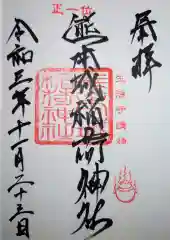 奉拝
正一位
熊本城稲荷神社
令和三年十一月二十三日